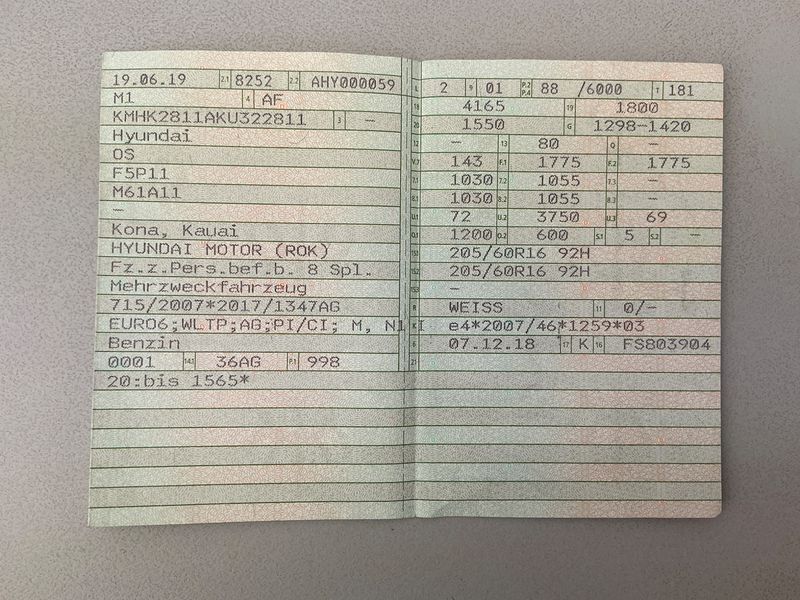 19.06.19 2.1 8252 2.2 AHY000059
M1 4 AF
KMHK2811AKU322811 3 –
Hyundai
OS
F5P11
M61A11
–
Kona, Kauai
HYUNDAI MOTOR (ROK)
Fz.z.Pers.bef.b. 8 Spl.
Mehrzweckfahrzeug
715/2007*2017/1347AG
EURO6;WLTP;AG;PI/CI; M, N1 I
Benzin
0001 14.1 36AG P.1 998
20:bis 1565*
L 2 9 01 P.2 P.4 88 /6000 T 181
18 4165 19 1800
20 1550 G 1298-1420
12 – 13 80 Q –
V.7 143 F.1 1775 F.2 1775
7.1 1030 7.2 1055 7.3 –
8.1 1030 8.2 1055 8.3 –
U.1 72 U.2 3750 U.3 69
O.1 1200 O.2 600 S.1 5 S.2 –
15.1 205/60R16 92H
15.2 205/60R16 92H
15.3 –
R WEISS 11 0/–
K e4*2007/46*1259*03
6 07.12.18 17 K 16 FS803904
21